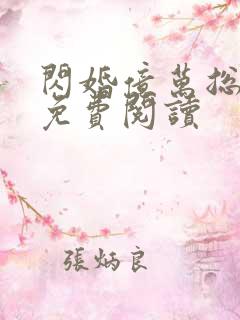 閃婚億萬総
免費閱讀
張炳良